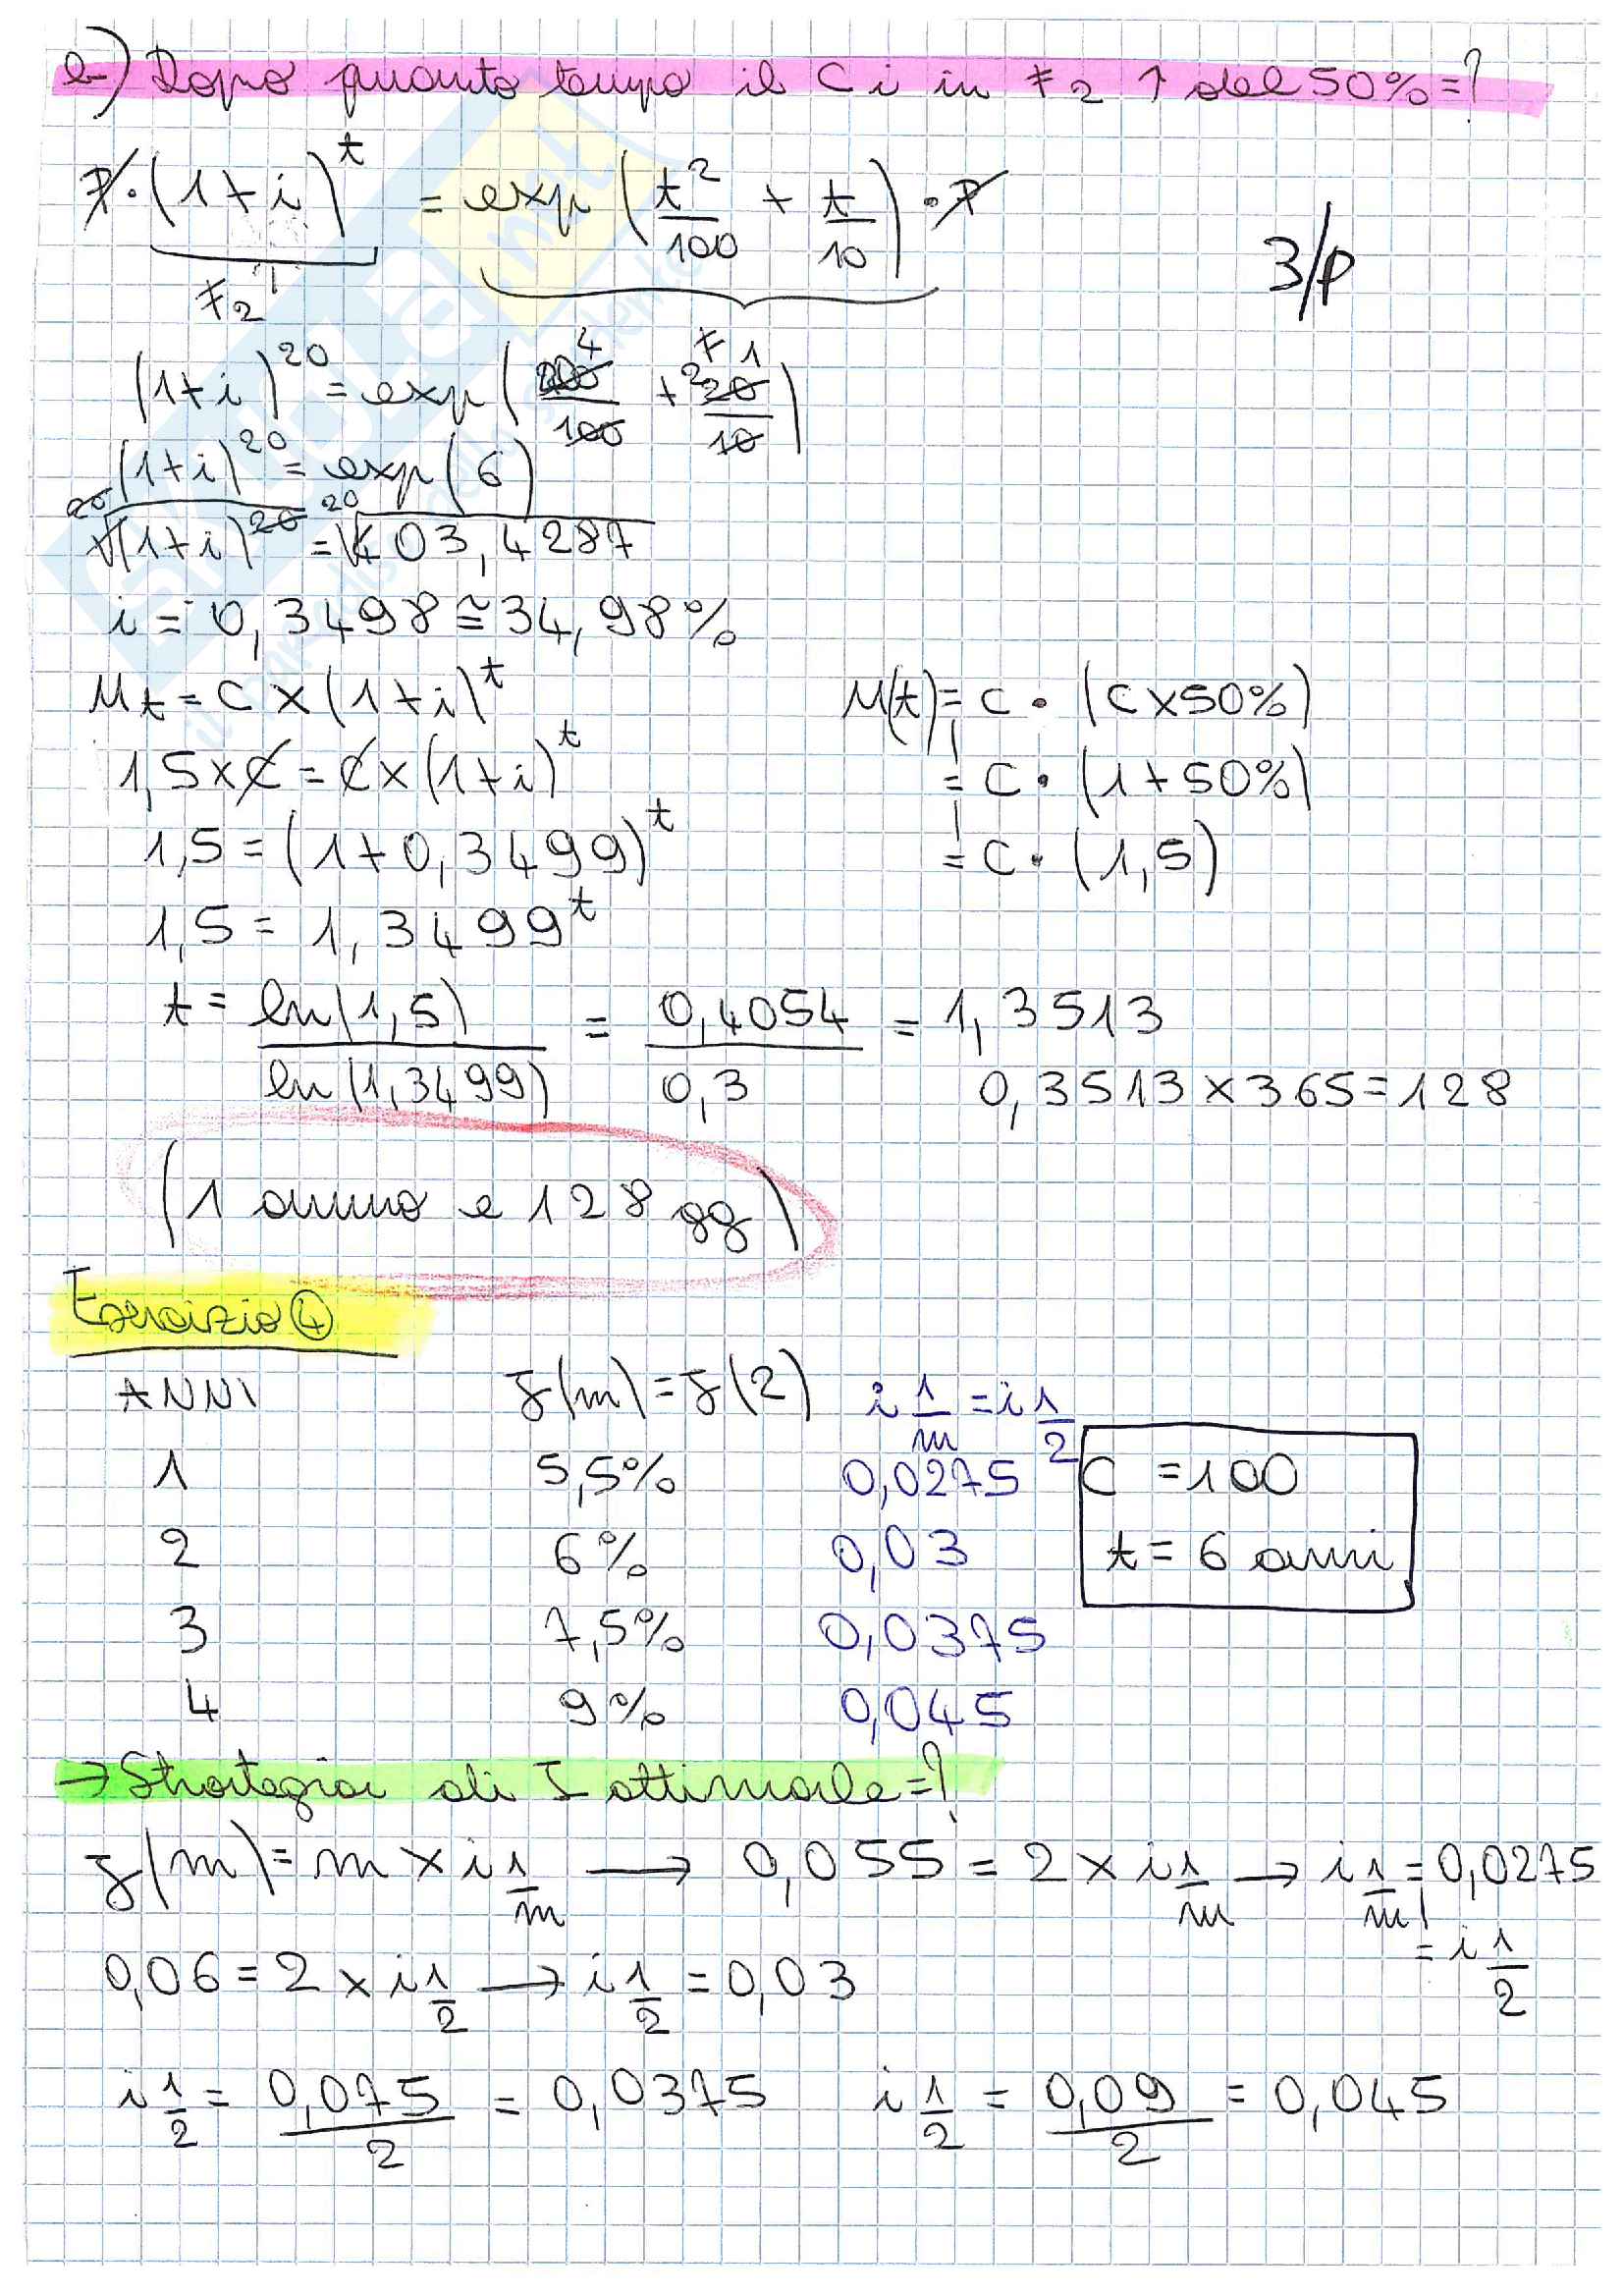 b) Dopo quanto tempo il Ci in F2 ↑ del 50% = ?
P · (1+i)^t = exp(t²/100 + t/10) · P
F2
3/P
(1+i)^20 = exp(400/100 + 20/10)
(1+i)^20 = exp(6)
²⁰√(1+i)^20 = ²⁰√403,4287
i = 0,3498 ≅ 34,98%
Mt = C × (1+i)^t
M(t) = C · (C×50%)
1,5 × C = C × (1+i)^t
= C · (1+50%)
1,5 = (1+0,3499)^t
= C · (1,5)
1,5 = 1,3499^t
t = ln(1,5)/ln(1,3499) = 0,4054/0,3 = 1,3513
0,3513 × 365 = 128
(1 anno e 128 gg)
Esercizio ④
ANNI J(m) = J(2) i 1/m = i 1/2
1 5,5% 0,0275
C = 100
2 6% 0,03
t = 6 anni
3 7,5% 0,0375
4 9% 0,045
→ Strategia di I ottimale = ?
J(m) = m × i 1/m → 0,055 = 2 × i 1/m → i 1/m = 0,0275
= i 1/2
0,06 = 2 × i 1/2 → i 1/2 = 0,03
i 1/2 = 0,075/2 = 0,0375 i 1/2 = 0,09/2 = 0,045